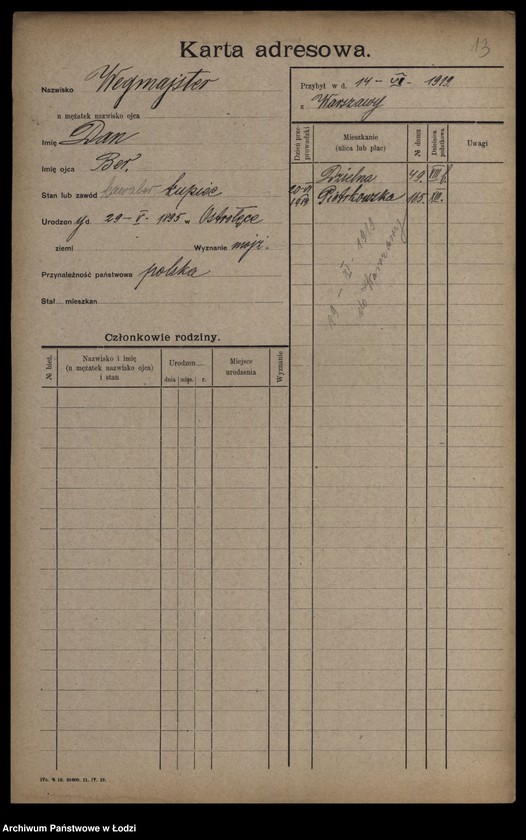 13
Karta adresowa.
Nazwisko Wegmajster
u mężatek nazwisko ojca
Imię Dan
Imię ojca Ber.
Stan lub zawód kawaler kupiec
Urodzon y d. 29-V-1895 w Ostrołęce
ziemi Wyznanie mojż.
Przynależność państwowa polska
Stał mieszkan
Przybył w d. 14-VI-1919
z Warszawy
Dzień przeprowadzki
Mieszkanie
(ulica lub plac)
№ domu
Dzielnica podatkowa
Uwagi
Dzielna 49 VIII
20-VI 1919 Piotrkowska 165 XIII.
19-XI-1919
do Warszawy
Członkowie rodziny.
№ bież.
Nazwisko i imię
(u mężatek nazwisko ojca)
i stan
Urodzon
dnia mies. r.
Miejsce
urodzenia
Wyznanie
Archiwum Państwowe w Łodzi